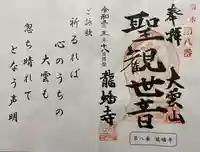 奉拝
大雲山
聖観世音
龍蟠寺
令和
ご詠歌
祈るれば
心のうちの
大雲も
忽ち晴れて
となう声明
第八番 龍蟠寺